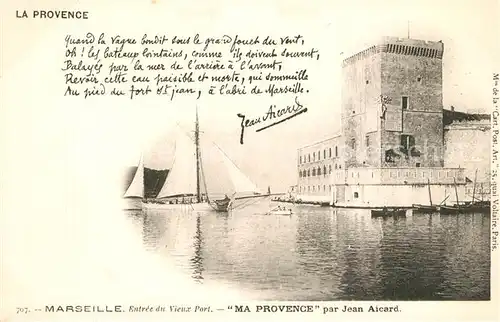 LA PROVENCE
Quand la vague bondit sous le grand fouet du vent,
Oh! les bateaux lointains, comme ils doivent souvent,
Balayés par la mer de l'arrière à l'avant,
Revoir cette eau paisible et morte, qui sommeille
Au pied du fort St Jean, à l'abri de Marseille.
Jean Aicard
Mon de la "Cart. Post. Art." 25, quai Voltaire, Paris.
707. — MARSEILLE. Entrée du Vieux Port. — "MA PROVENCE" par Jean Aicard.